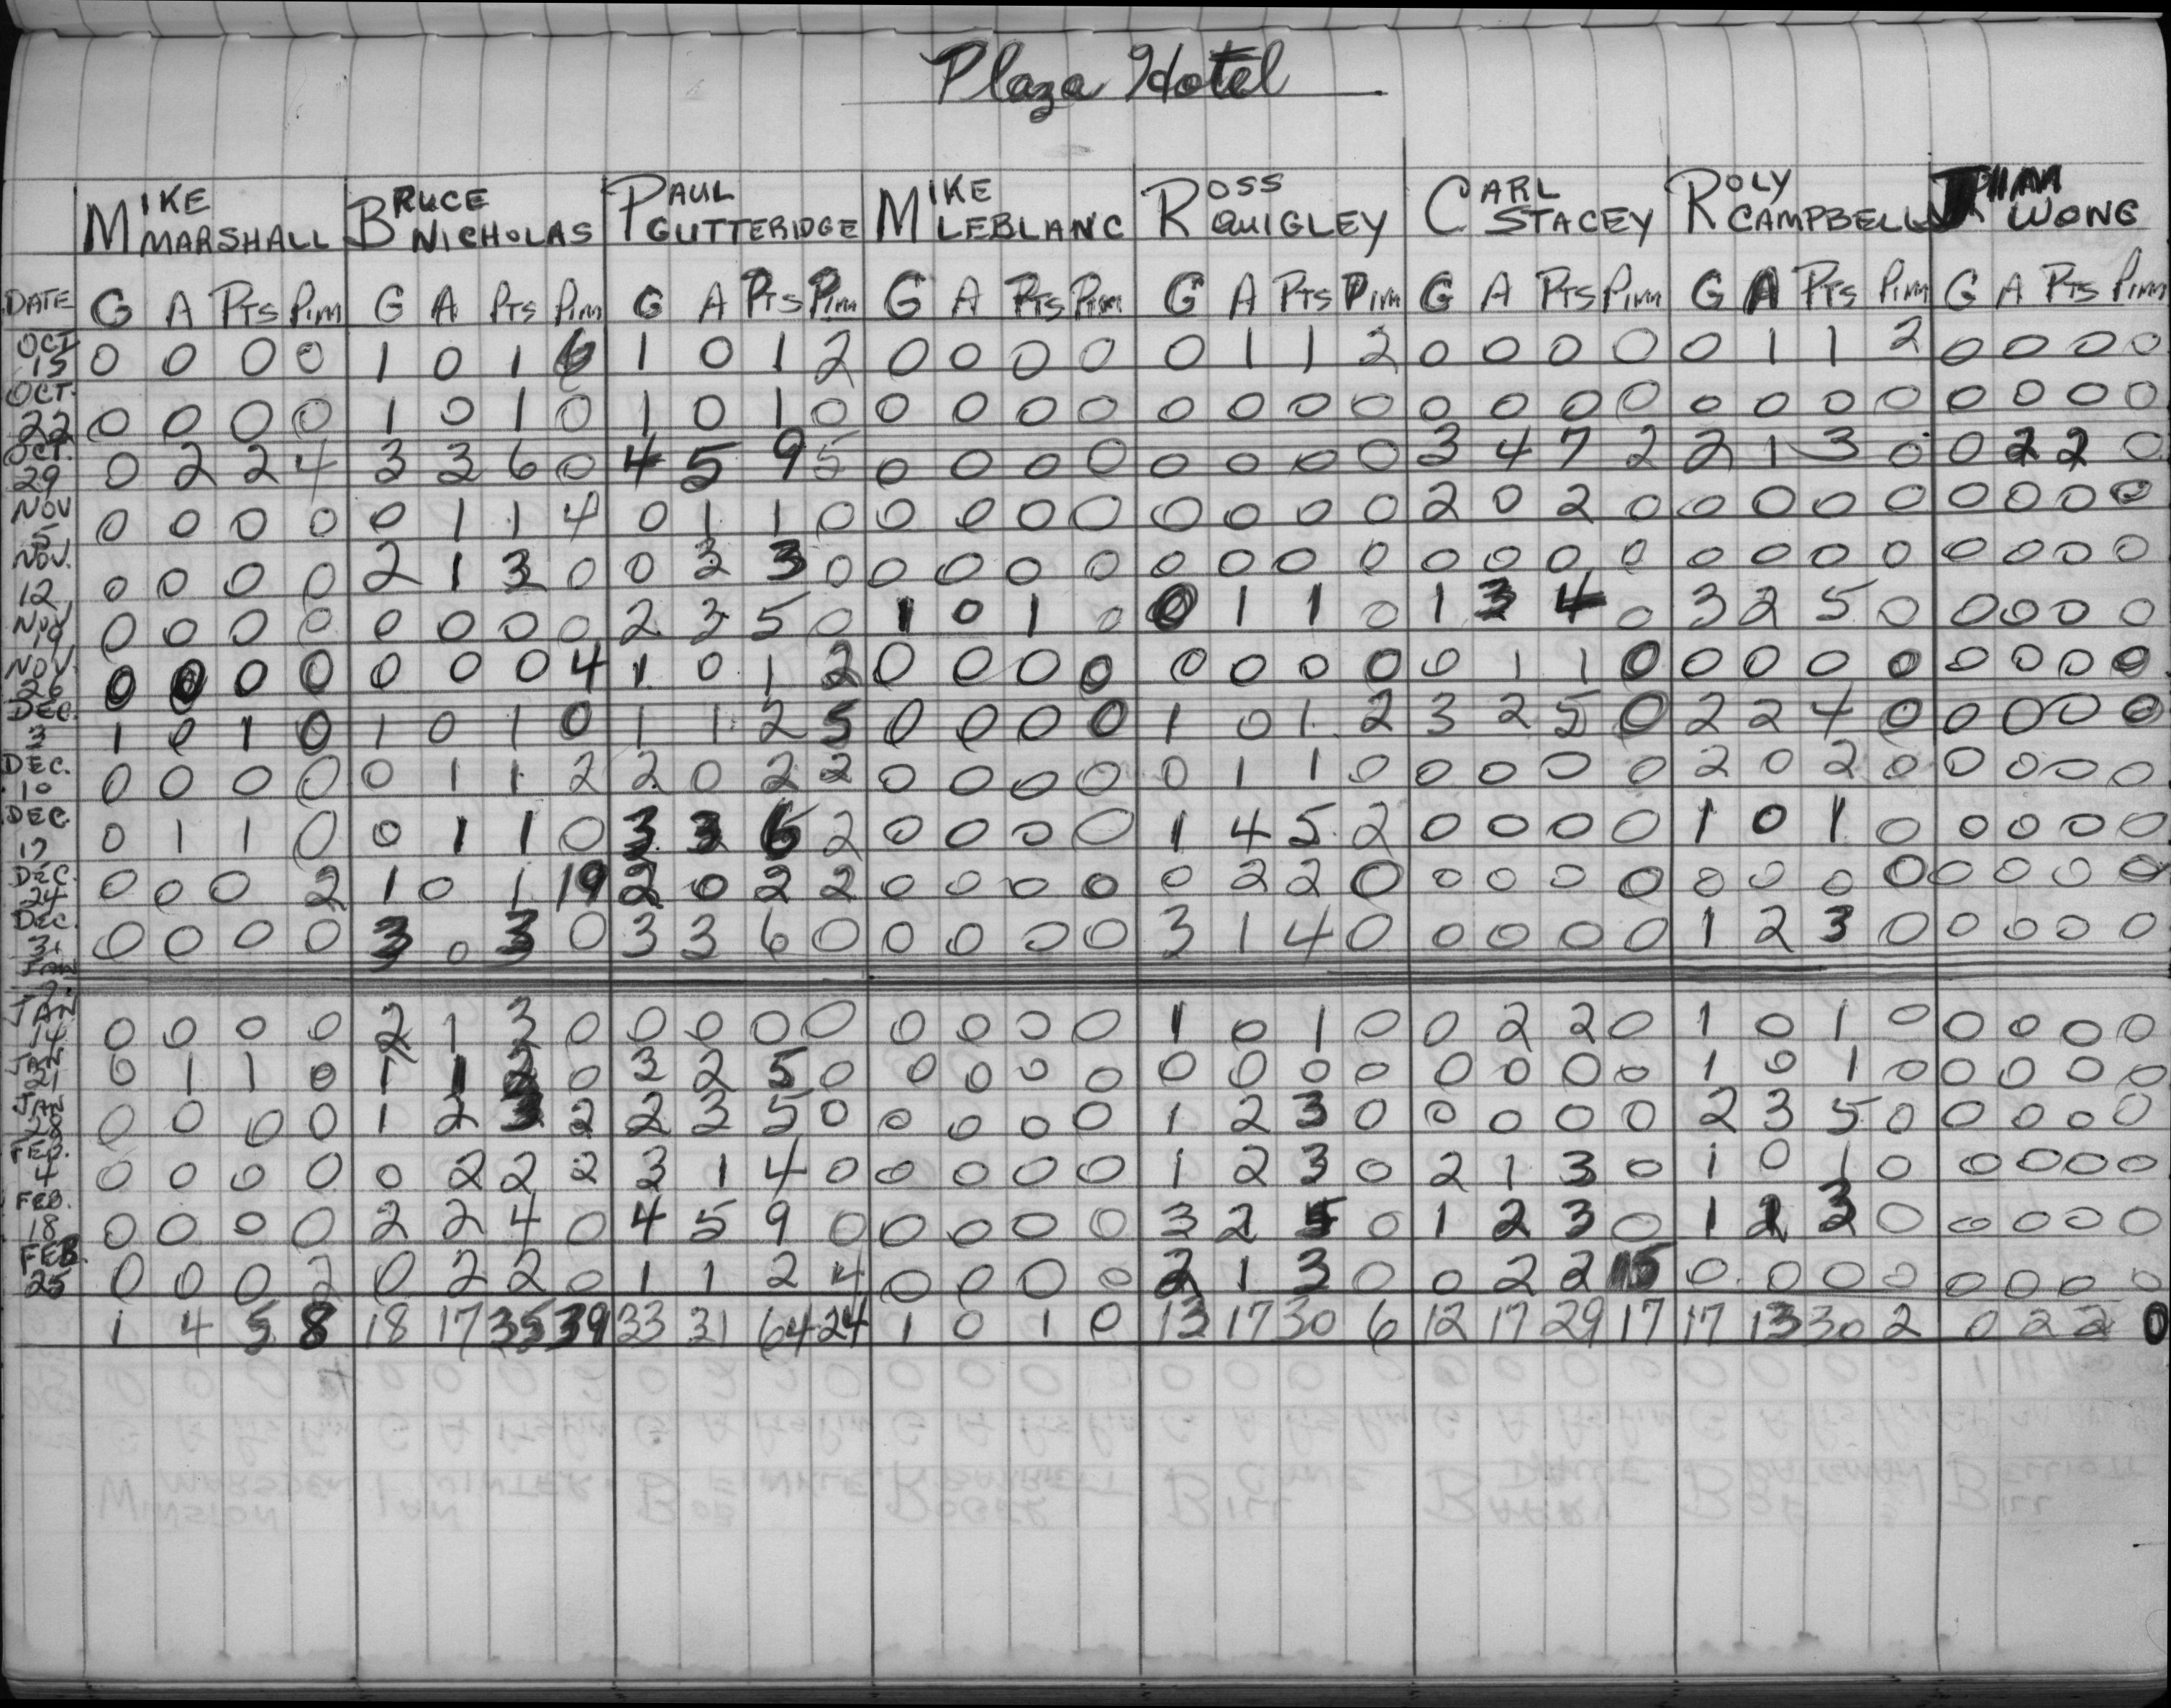 Plaza Hotel
MIKE MARSHALL BRUCE NICHOLAS PAUL GUTTERIDGE MIKE LEBLANC ROSS QUIGLEY CARL STACEY ROLY CAMPBELL WONG
DATE G A PTS Pim G A PTS Pim G A PTS Pim G A PTS Pim G A PTS Pim G A PTS Pim G A PTS Pim G A PTS Pim
OCT 15 0 0 0 0 1 0 1 6 1 0 1 2 0 0 0 0 0 1 1 2 0 0 0 0 0 1 1 2 0 0 0 0
OCT. 22 0 0 0 0 1 0 1 0 1 0 1 0 0 0 0 0 0 0 0 0 0 0 0 0 0 0 0 0 0 0 0 0
OCT. 29 0 2 2 4 3 3 6 0 4 5 9 5 0 0 0 0 0 0 0 0 3 4 7 2 2 1 3 0 0 2 2 0
NOV 5 0 0 0 0 0 1 1 4 0 1 1 0 0 0 0 0 0 0 0 0 2 0 2 0 0 0 0 0 0 0 0 0
NOV. 12 0 0 0 0 2 1 3 0 0 3 3 0 0 0 0 0 0 0 0 0 0 0 0 0 0 0 0 0 0 0 0 0
NOV 19 0 0 0 0 0 0 0 0 2 3 5 0 1 0 1 0 0 1 1 0 1 3 4 0 3 2 5 0 0 0 0 0
NOV. 26 0 0 0 0 0 0 0 4 1 0 1 2 0 0 0 0 0 0 0 0 0 1 1 0 0 0 0 0 0 0 0 0
DEC. 3 1 0 1 0 1 0 1 0 1 1 2 5 0 0 0 0 1 0 1 2 3 2 5 0 2 2 4 0 0 0 0 0
DEC. 10 0 0 0 0 0 1 1 2 2 0 2 2 0 0 0 0 0 1 1 0 0 0 0 0 2 0 2 0 0 0 0 0
DEC. 17 0 1 1 0 0 1 1 0 3 3 6 2 0 0 0 0 1 4 5 2 0 0 0 0 1 0 1 0 0 0 0 0
DEC. 24 0 0 0 2 1 0 1 19 2 0 2 2 0 0 0 0 0 2 2 0 0 0 0 0 0 0 0 0 0 0 0 0
DEC. 31 0 0 0 0 3 0 3 0 3 3 6 0 0 0 0 0 3 1 4 0 0 0 0 0 1 2 3 0 0 0 0 0
JAN
JAN 14 0 0 0 0 2 1 3 0 0 0 0 0 0 0 0 0 1 0 1 0 0 2 2 0 1 0 1 0 0 0 0 0
JAN 21 0 1 1 0 1 1 2 0 3 2 5 0 0 0 0 0 0 0 0 0 0 0 0 0 1 0 1 0 0 0 0 0
JAN 28 0 0 0 0 1 2 3 2 2 3 5 0 0 0 0 0 1 2 3 0 0 0 0 0 2 3 5 0 0 0 0 0
FEB. 4 0 0 0 0 0 2 2 2 3 1 4 0 0 0 0 0 1 2 3 0 2 1 3 0 1 0 1 0 0 0 0 0
FEB. 18 0 0 0 0 2 2 4 0 4 5 9 0 0 0 0 0 3 2 5 0 1 2 3 0 1 2 3 0 0 0 0 0
FEB. 25 0 0 0 2 0 2 2 0 1 1 2 4 0 0 0 0 2 1 3 0 0 2 2 15 0 0 0 0 0 0 0 0
1 4 5 8 18 17 35 39 33 31 64 24 1 0 1 0 13 17 30 6 12 17 29 17 17 13 30 2 0 2 2 0